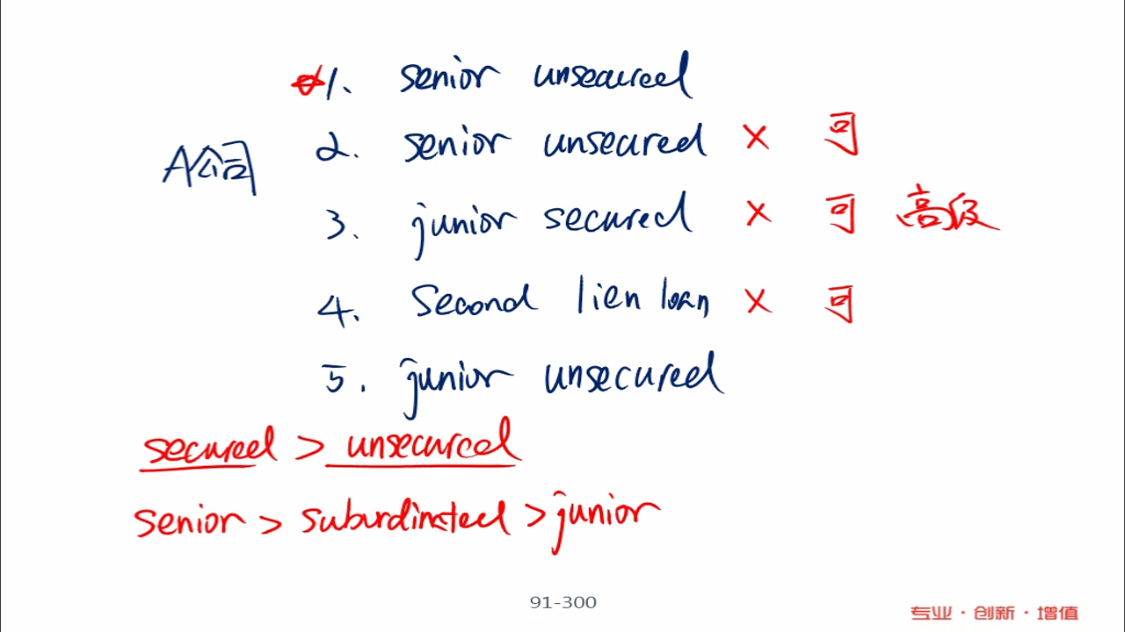 1. senior unsecured
A公司
2. senior unsecured × 可
3. junior secured × 可 高级
4. Second lien loan × 可
5. junior unsecured
secured > unsecured
senior > subordinated > junior
91-300
专业·创新·增值